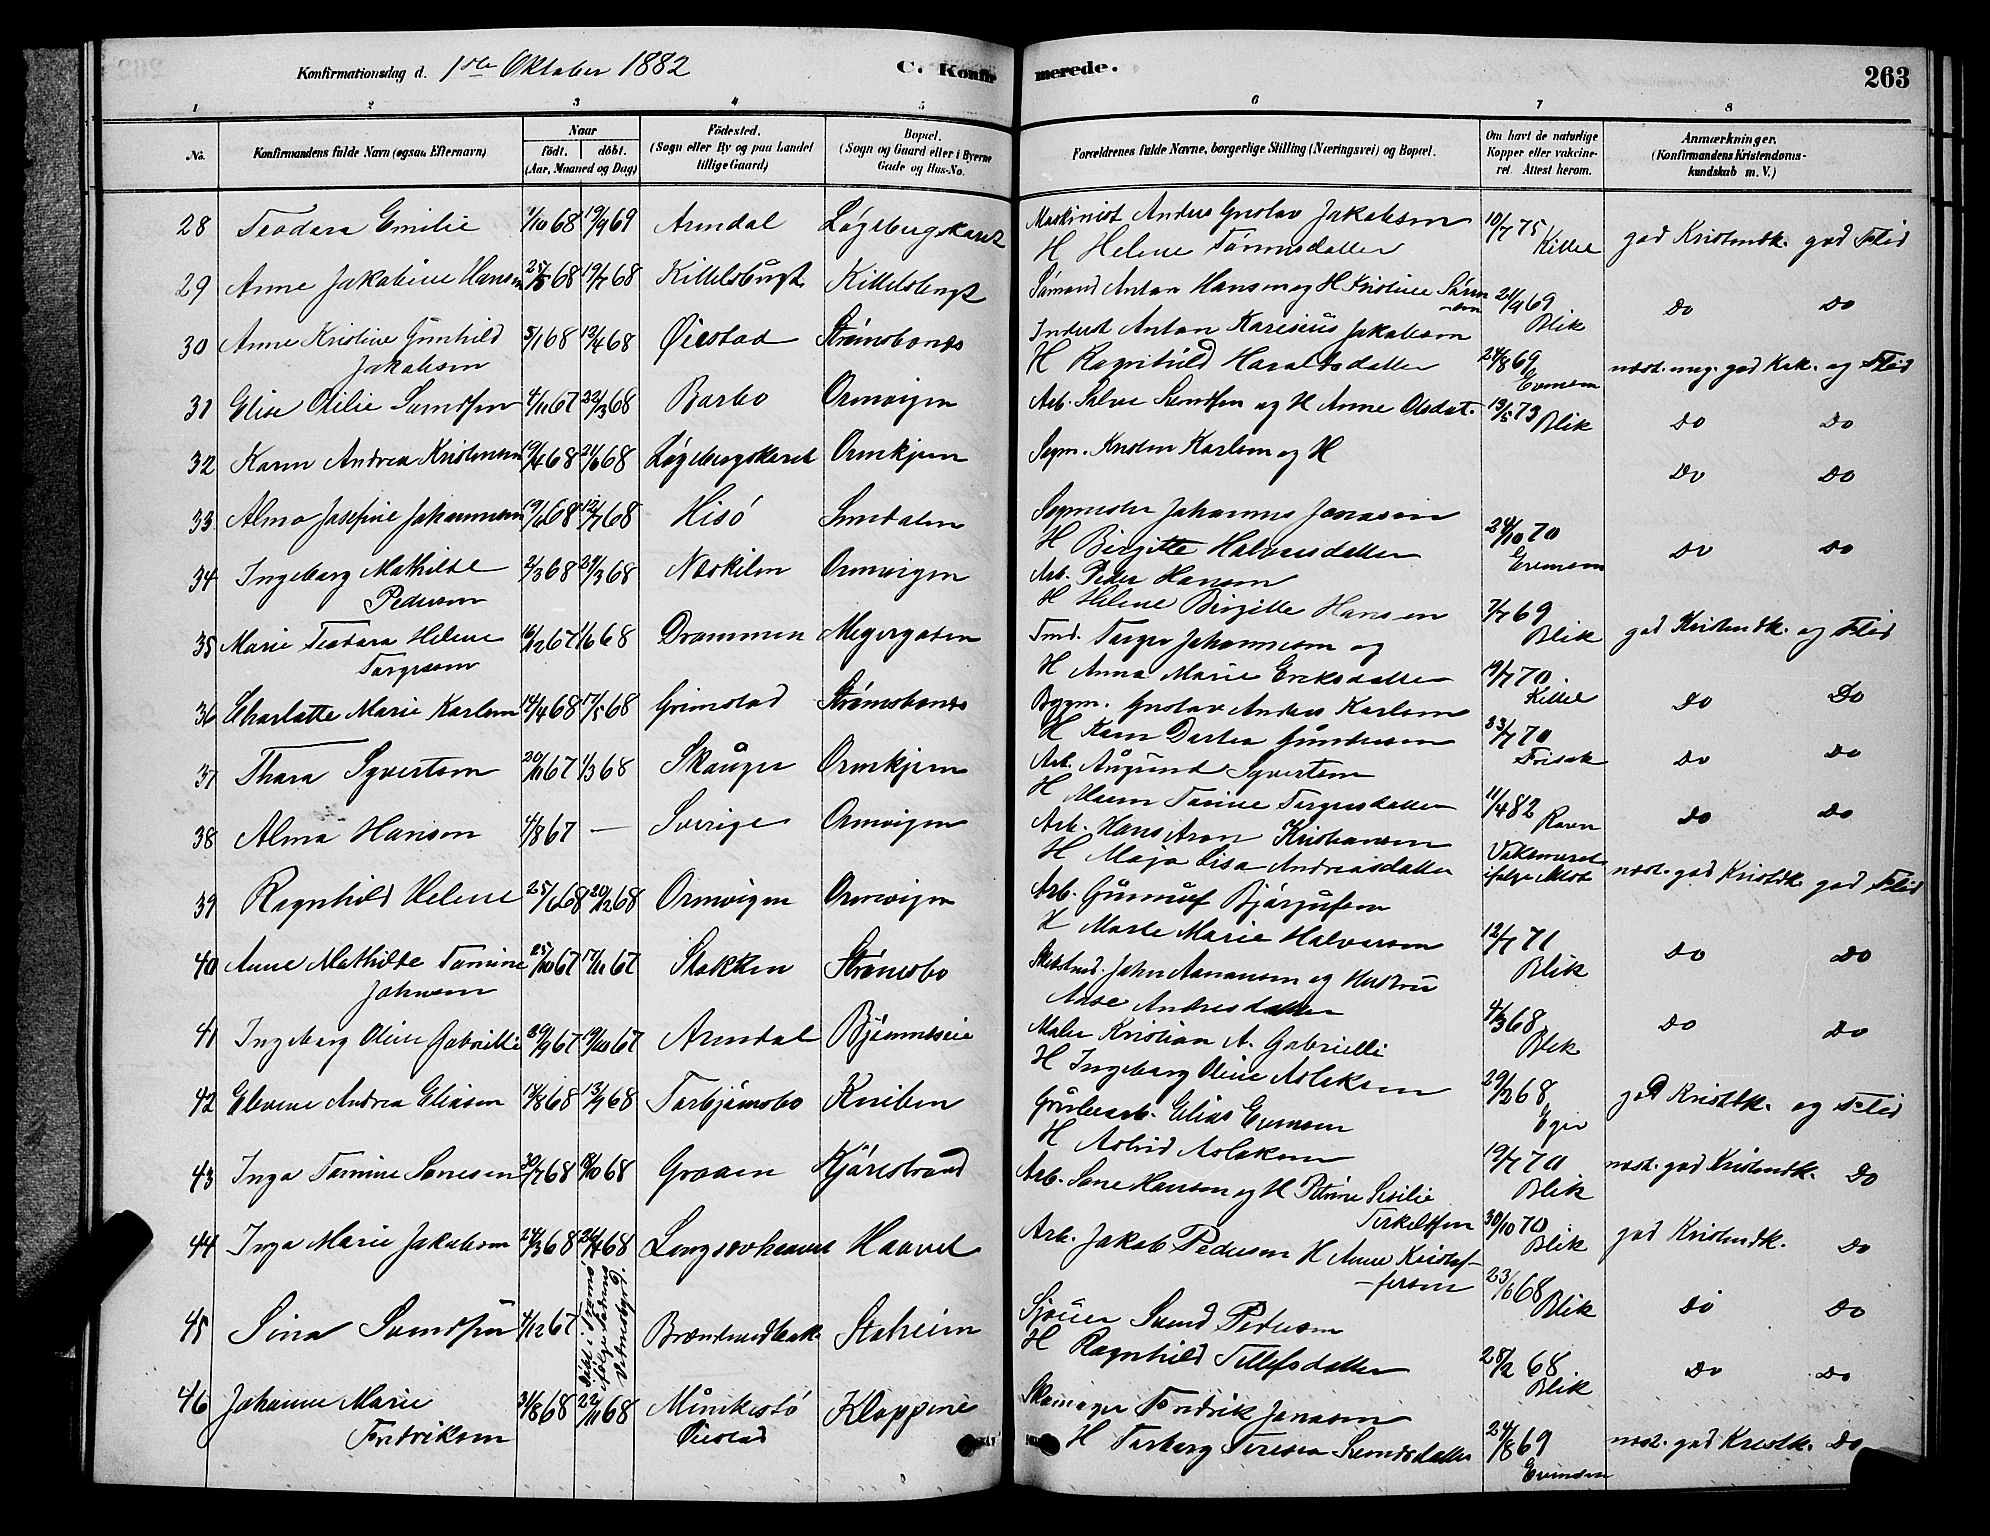 Konfirmationsdag d. 1ste Oktober 1882
C. Konfirmerede.
263
1 2 3 4 5 6 7 8
No.
Konfirmandens fulde Navn (ogsaa Efternavn)
Naar
födt. döbt.
(Aar, Maaned og Dag)
Födested.
(Sogn eller By og paa Landet
tillige Gaard)
Bopæl.
(Sogn og Gaard eller i Byerne
Gade og Hus-No.
Forældrenes fulde Navne, borgerlige Stilling (Næringsvei) og Bopæl.
Om havt de naturlige
Kopper eller vakcine-
ret. Attest herom.
Anmærkninger.
(Konfirmandens Kristendoms-
kundskab m. V.)
28 Teodora Emilie 1/10 68 19/9 69 Arendal Løgebergskaret Maskinist Anders Gustav Jakobsen
H Helene Tønnesdatter 10/7 75 Kittel god Kristendk. god Flid
29 Anne Jakobine Hansen 25/5 68 19/7 68 Kittelsbugt Kittelsbugt Sømand Anton Hansen og H Kristine Sørensen 21/9 69 Blik Do Do
30 Anne Kristine Gunhild
Jakobsen 5/1 68 12/4 68 Øiestad Strømsbonæs Inderst Anton Karisius Jakobsen
H Ragnhild Haraldsdatter 24/8 69 Evensen næst. meg. god Krk. og Flid
31 Elise Otilie Svendsen 4/11 67 22/3 68 Barbo Ormvigen Arb. Salve Svendsen og H Anne Olsdat. 13/5 73 Blik Do Do
32 Karen Andrea Kristensen 19/4 68 21/6 68 Løgebergskaret Ormkjern Sagm. Kristen Karlsen og H Do Do
33 Alma Josefine Johannesen 19/6 68 12/7 68 Hisö Smedalen Sagmester Johannes Jonasen
H Birgitte Halvorsdatter 24/10 70 Evensen Do Do
34 Ingeborg Mathilde
Pedersen 2/3 68 29/3 68 Næskilen Ormvigen Arb. Peder Hansen
H Helene Birgitte Hansen 7/7 69 Blik god Kristendk. og Flid
35 Marie Teodora Helene
Torgersen 16/12 67 1/6 68 Drammen Meyergaden Tmd. Torger Johannesen og
H Anna Marie Eriksdatter 19/7 70 Kittel Do Do
36 Charlotte Marie Karlsen 14/4 68 17/5 68 Grimstad Strømsbonæs Bygm. Gustav Anders Karlsen
H Karen Dortea Gundersen 23/7 70 Frisak Do Do
37 Thora Syvertsen 20/11 67 1/3 68 Skauger Ormkjern Arb. Augund Syvertsen
H Maren Tomine Torgersdatter 11/4 82 Ravn Do Do
38 Alma Hansen 4/8 67 — Sverige Ormvigen Arb. Hans Aron Kristiansen
H Maja Lisa Andreasdatter Vaksineret ifølge Attest næst. god Kristdk. god Flid
39 Ragnhild Helene 25/6 68 20/12 68 Ormvigen Ormvigen Arb. Gunnuf Bjørgufsen
H Marte Marie Halvorsen 12/7 71 Blik Do Do
40 Anne Mathilde Tomine
Johnsen 25/10 67 17/11 67 Stokken Strømsbo Skibstmd. John Aanansen og Hustru
Aase Andresdatter 4/3 68 Blik Do Do
41 Ingeborg Oline Gabrielli 30/9 67 19/10 67 Arendal Bjønnæseie Maler Kristian A. Gabrielli
H Ingeborg Oline Aslaksen 29/2 68 Eger god Kristdk. og Flid
42 Elevine Andrea Eliasen 18/8 68 13/9 68 Torbjørnsbo Kniben Grubearb. Elias Evensen
H Astrid Aslaksen 19/7 70 Blik næst. god Kristendk. Do
43 Inga Tomine Sørensen 30/7 68 18/10 68 Graaen Kjørrestrand Arb. Søre Hansen og H Petrine Sesilie
Terkelsen 30/10 70 Blik god Kristendk. Do
44 Inga Marie Jakobsen 24/3 68 26/4 68 Langsævhaavet Haavet Arb. Jakob Pedersen H Anne Kristof-
fersen 23/6 68 Blik Do Do
45 Sina Svendsen 4/12 67 döbt i Tromö ifølge Faderens Vidnesbyrd. Brændevinsbak. Staheien Sjøuer Svend Pedersen
H Ragnhild Tellefsdatter 28/2 68 Blik Do Do
46 Johanne Marie
Fredriksen 31/8 68 22/11 68 Munkestö
Øiestad Kloppene Skomager Fredrik Jonasen
H Torborg Teresia Svendsdatter 24/8 69 Evensen næst. god Kristk. Do